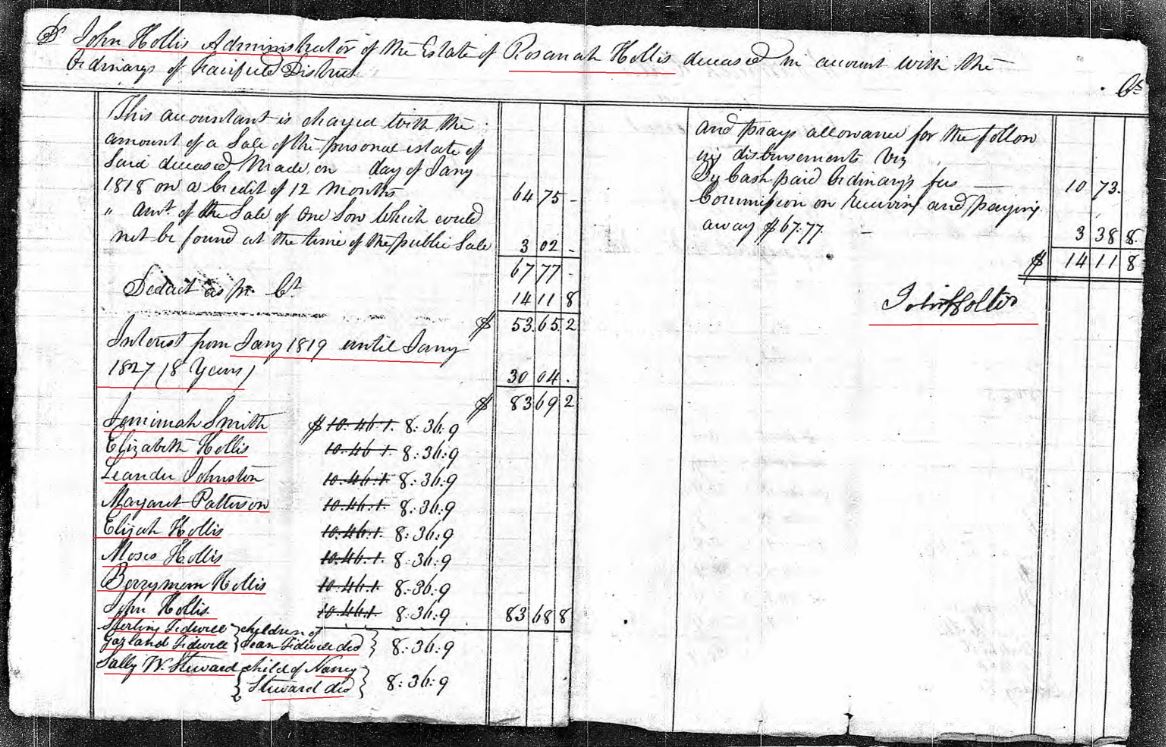 Dr John Hollis Administrator of the Estate of Rosanah Hollis deceased in account with the
Ordinary of Fairfield District
Cr
This accountant is charged with the
amount of a Sale of the personal estate of
Said deceased Made on day of Jany
1818 on a Credit of 12 Months 64 75 -
" amt of the Sale of one Sow which could
not be found at the time of the public Sale 3 02 -
67 77 -
Deduct as pr Cr 14 11 8
$ 53.65 2
Interest from Jany 1819 until Jany
1827 (8 Years) 30 04.
$ 83 69 2
Jemimah Smith $ 10.46.1. 8:36:9
Elizabeth Hollis 10.46.1. 8:36:9
Leander Johnston 10.46.1 8:36:9
Margaret Patterson 10.46.1. 8:36:9
Elijah Hollis 10.46.1. 8:36:9
Moses Hollis 10.46.1. 8:36:9
Berryman Hollis 10.46.1 8:36:9
John Hollis 10.46.1 8:36:9 83 68 8
Sterling Tidwell } children of
Garland Tidwell } Jean Tidwell decd } 8:36:9
Sally W. Steward child of Nancy
{ Steward decd } 8:36:9
and prays allowance for the follow
ing disbursements Viz
By Cash paid Ordinarys fees 10 73.
Commission on receiving and paying
away $67.77 - 3 38 8
$ 14 11 8
John Hollis